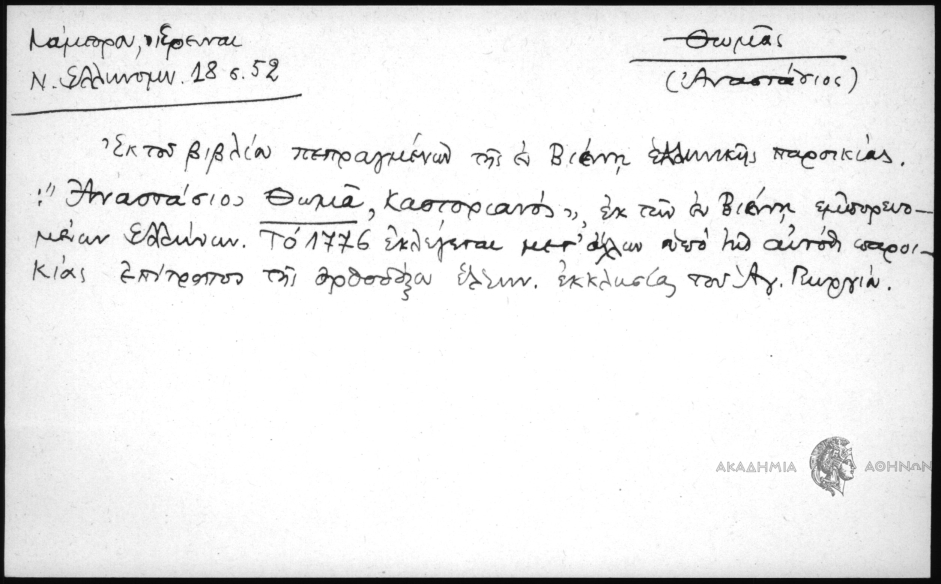 Λάμπρου, Ἔρευναι
Ν. Ἑλληνομν. 18 σ. 52
Θωμᾶς
(Ἀναστάσιος)
Ἐκ τοῦ βιβλίου πεπραγμένων τῆς ἐν Βιέννῃ ἑλληνικῆς παροικίας.
:" Ἀναστάσιος Θωμᾶ, Καστοριανός", ἐκ τῶν ἐν Βιέννῃ ἐμπορευο-
μένων Ἑλλήνων. Τό 1776 ἐκλέγεται μετ' ἄλλων ὑπό τῆς αὐτόθι παροι-
κίας ἐπίτροπος τῆς ὀρθοδόξου ἑλλην. ἐκκλησίας τοῦ Ἁγ. Γεωργίου.
ΑΚΑΔΗΜΙΑ ΑΘΗΝΩΝ